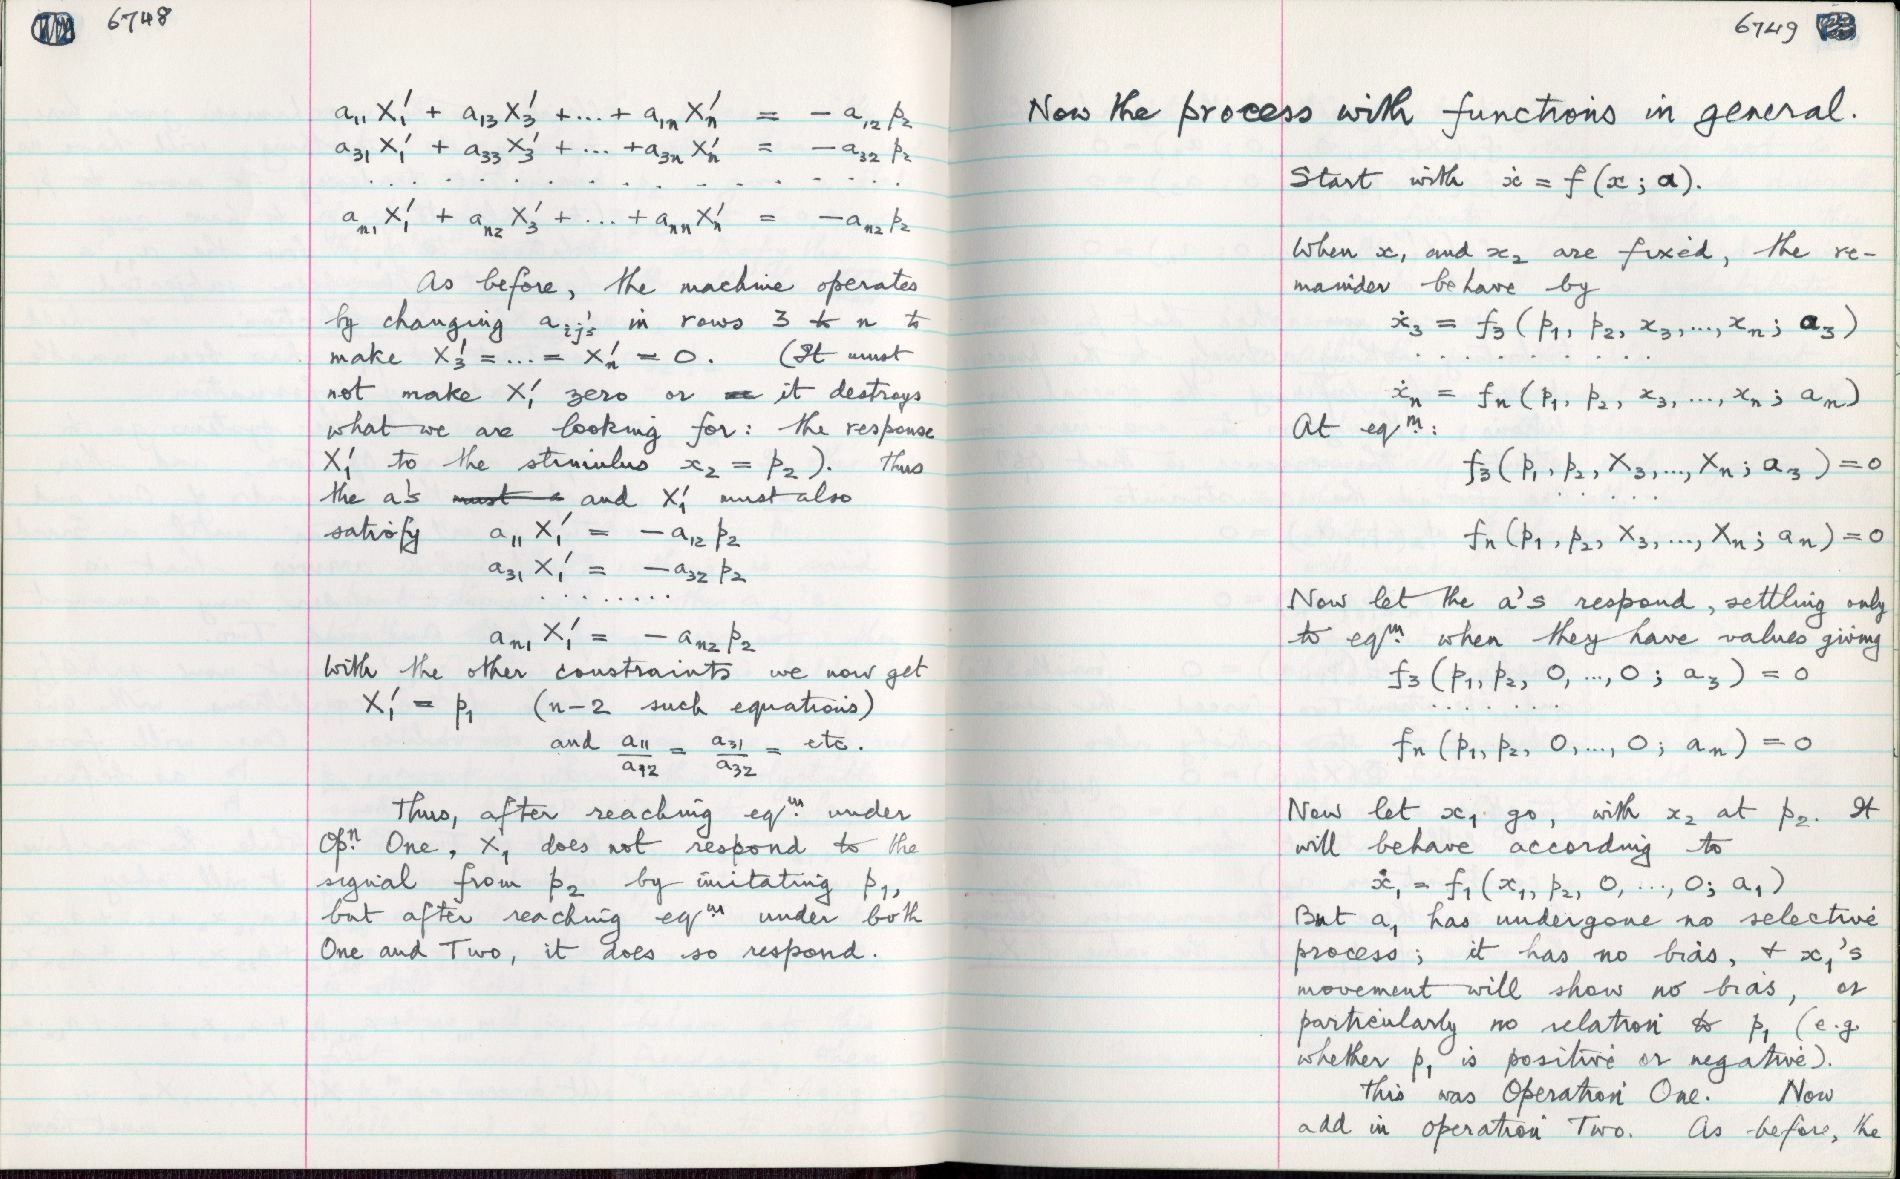 6748
a₁₁X₁′ + a₁₃X₃′ + ... + a₁ₙXₙ′ = − a₁₂p₂
a₃₁X₁′ + a₃₃X₃′ + ... + a₃ₙXₙ′ = − a₃₂p₂
. . . . . . . . . . . . . . . .
aₙ₁X₁′ + aₙ₂X₃′ + ... + aₙₙXₙ′ = − aₙ₂p₂
As before, the machine operates
by changing aᵢⱼ's in rows 3 to n to
make X₃′ = ... = Xₙ′ = 0. (It must
not make X₁′ zero or it destroys
what we are looking for: the response
X₁′ to the stimulus x₂ = p₂). Thus
the a's must and X₁′ must also
satisfy a₁₁X₁′ = − a₁₂p₂
a₃₁X₁′ = − a₃₂p₂
. . . . . . . .
aₙ₁X₁′ = − aₙ₂p₂
With the other constraints we now get
X₁′ = p₁ (n−2 such equations)
and a₁₁/a₁₂ = a₃₁/a₃₂ = etc.
Thus, after reaching eqᵐ under
Opⁿ One, X₁ does not respond to the
signal from p₂ by imitating p₁,
but after reaching eqᵐ under both
One and Two, it does so respond.
6749
Now the process with functions in general.
Start with ẋ = f(x; a).
When x₁ and x₂ are fixed, the re-
mainder behave by
ẋ₃ = f₃(p₁, p₂, x₃, ..., xₙ; a₃)
. . . . . . . . . .
ẋₙ = fₙ(p₁, p₂, x₃, ..., xₙ; aₙ)
At eqᵐ:
f₃(p₁, p₂, X₃, ..., Xₙ; a₃) = 0
. . . . . .
fₙ(p₁, p₂, X₃, ..., Xₙ; aₙ) = 0
Now let the a's respond, settling only
to eqᵐ when they have values giving
f₃(p₁, p₂, 0, ..., 0; a₃) = 0
. . . . . . . .
fₙ(p₁, p₂, 0, ..., 0; aₙ) = 0
Now let x₁ go, with x₂ at p₂. It
will behave according to
ẋ₁ = f₁(x₁, p₂, 0, ..., 0; a₁)
But a₁ has undergone no selective
process; it has no bias, & x₁'s
movement will show no bias, or
particularly no relation to p₁ (e.g.
whether p₁ is positive or negative).
This was Operation One. Now
add in operation Two. As before, the